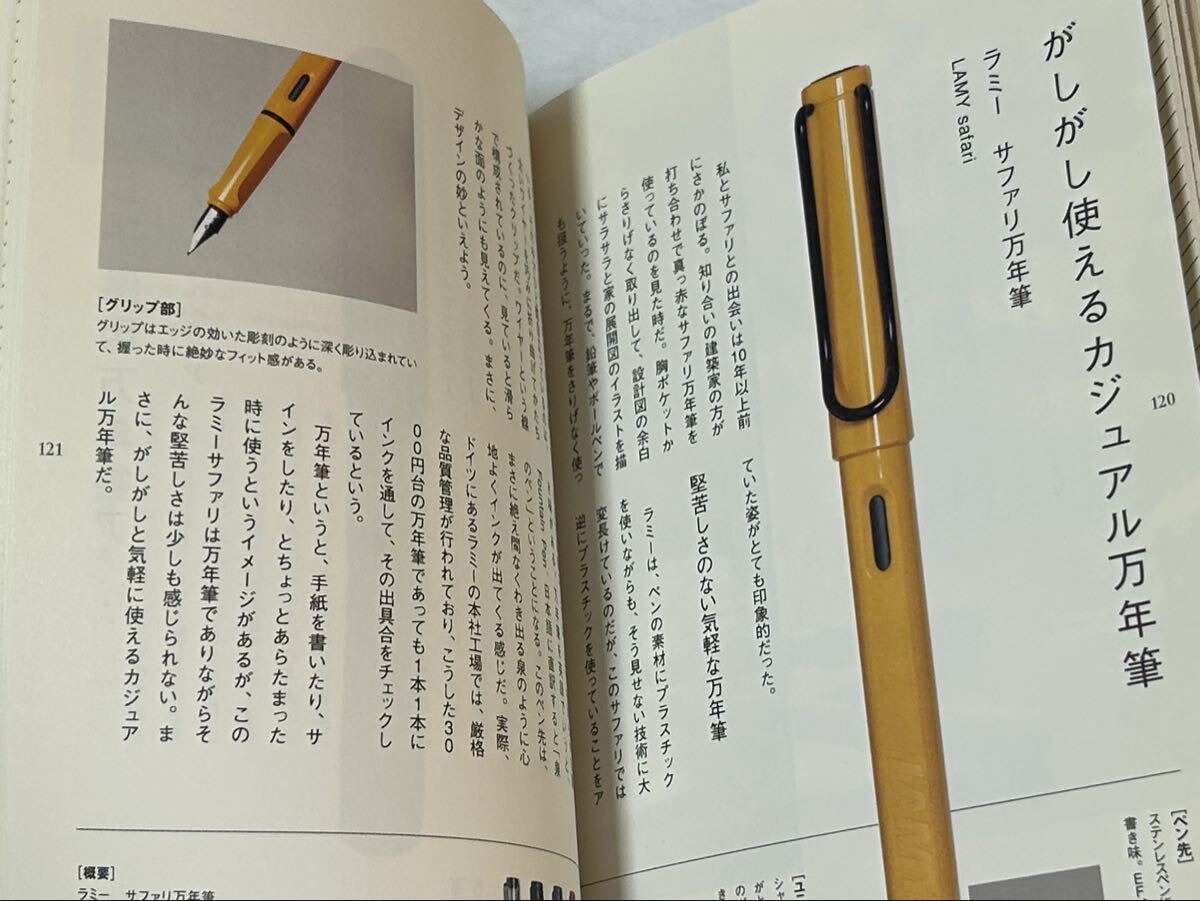 がしがし使えるカジュアル万年筆
ラミー サファリ万年筆
LAMY safari
120
私とサファリとの出会いは10年以上前
にさかのぼる。知り合いの建築家の方が
打ち合わせで真っ赤なサファリ万年筆を
使っているのを見た時だ。胸ポケットか
らさりげなく取り出して、設計図の余白
にサラサラと家の展開図のイラストを描
いていった。まるで、鉛筆やボールペンで
も扱うように、万年筆をさりげなく使っ
ていた姿がとても印象的だった。
堅苦しさのない気軽な万年筆
ラミーは、ペンの素材にプラスチック
を使いながらも、そう見せない技術に大
変長けているのだが、このサファリでは
逆にプラスチックを使っていることをア
[ペン先]
ステンレスペン
書き味。EF
つくったクリップだ。ワイヤーという線
で構成されているのに、見ていると滑ら
かな面のようにも見えてくる。まさに、
デザインの妙といえよう。
Fountain Pen。日本語に直訳すると「泉
のペン」ということになる。このペン先は、
まさに絶え間なくわき出る泉のように心
地よくインクが出てくる感じだ。実際、
ドイツにあるラミーの本社工場では、厳格
な品質管理が行われており、こうした30
00円台の万年筆であっても1本1本に
インクを通して、その出具合をチェックし
ているという。
万年筆というと、手紙を書いたり、サ
インをしたり、とちょっとあらたまった
時に使うというイメージがあるが、この
ラミーサファリは万年筆でありながらそ
んな堅苦しさは少しも感じられない。ま
さに、がしがしと気軽に使えるカジュア
ル万年筆だ。
[グリップ部]
グリップはエッジの効いた彫刻のように深く彫り込まれてい
て、握った時に絶妙なフィット感がある。
121
[概要]
ラミー サファリ万年筆